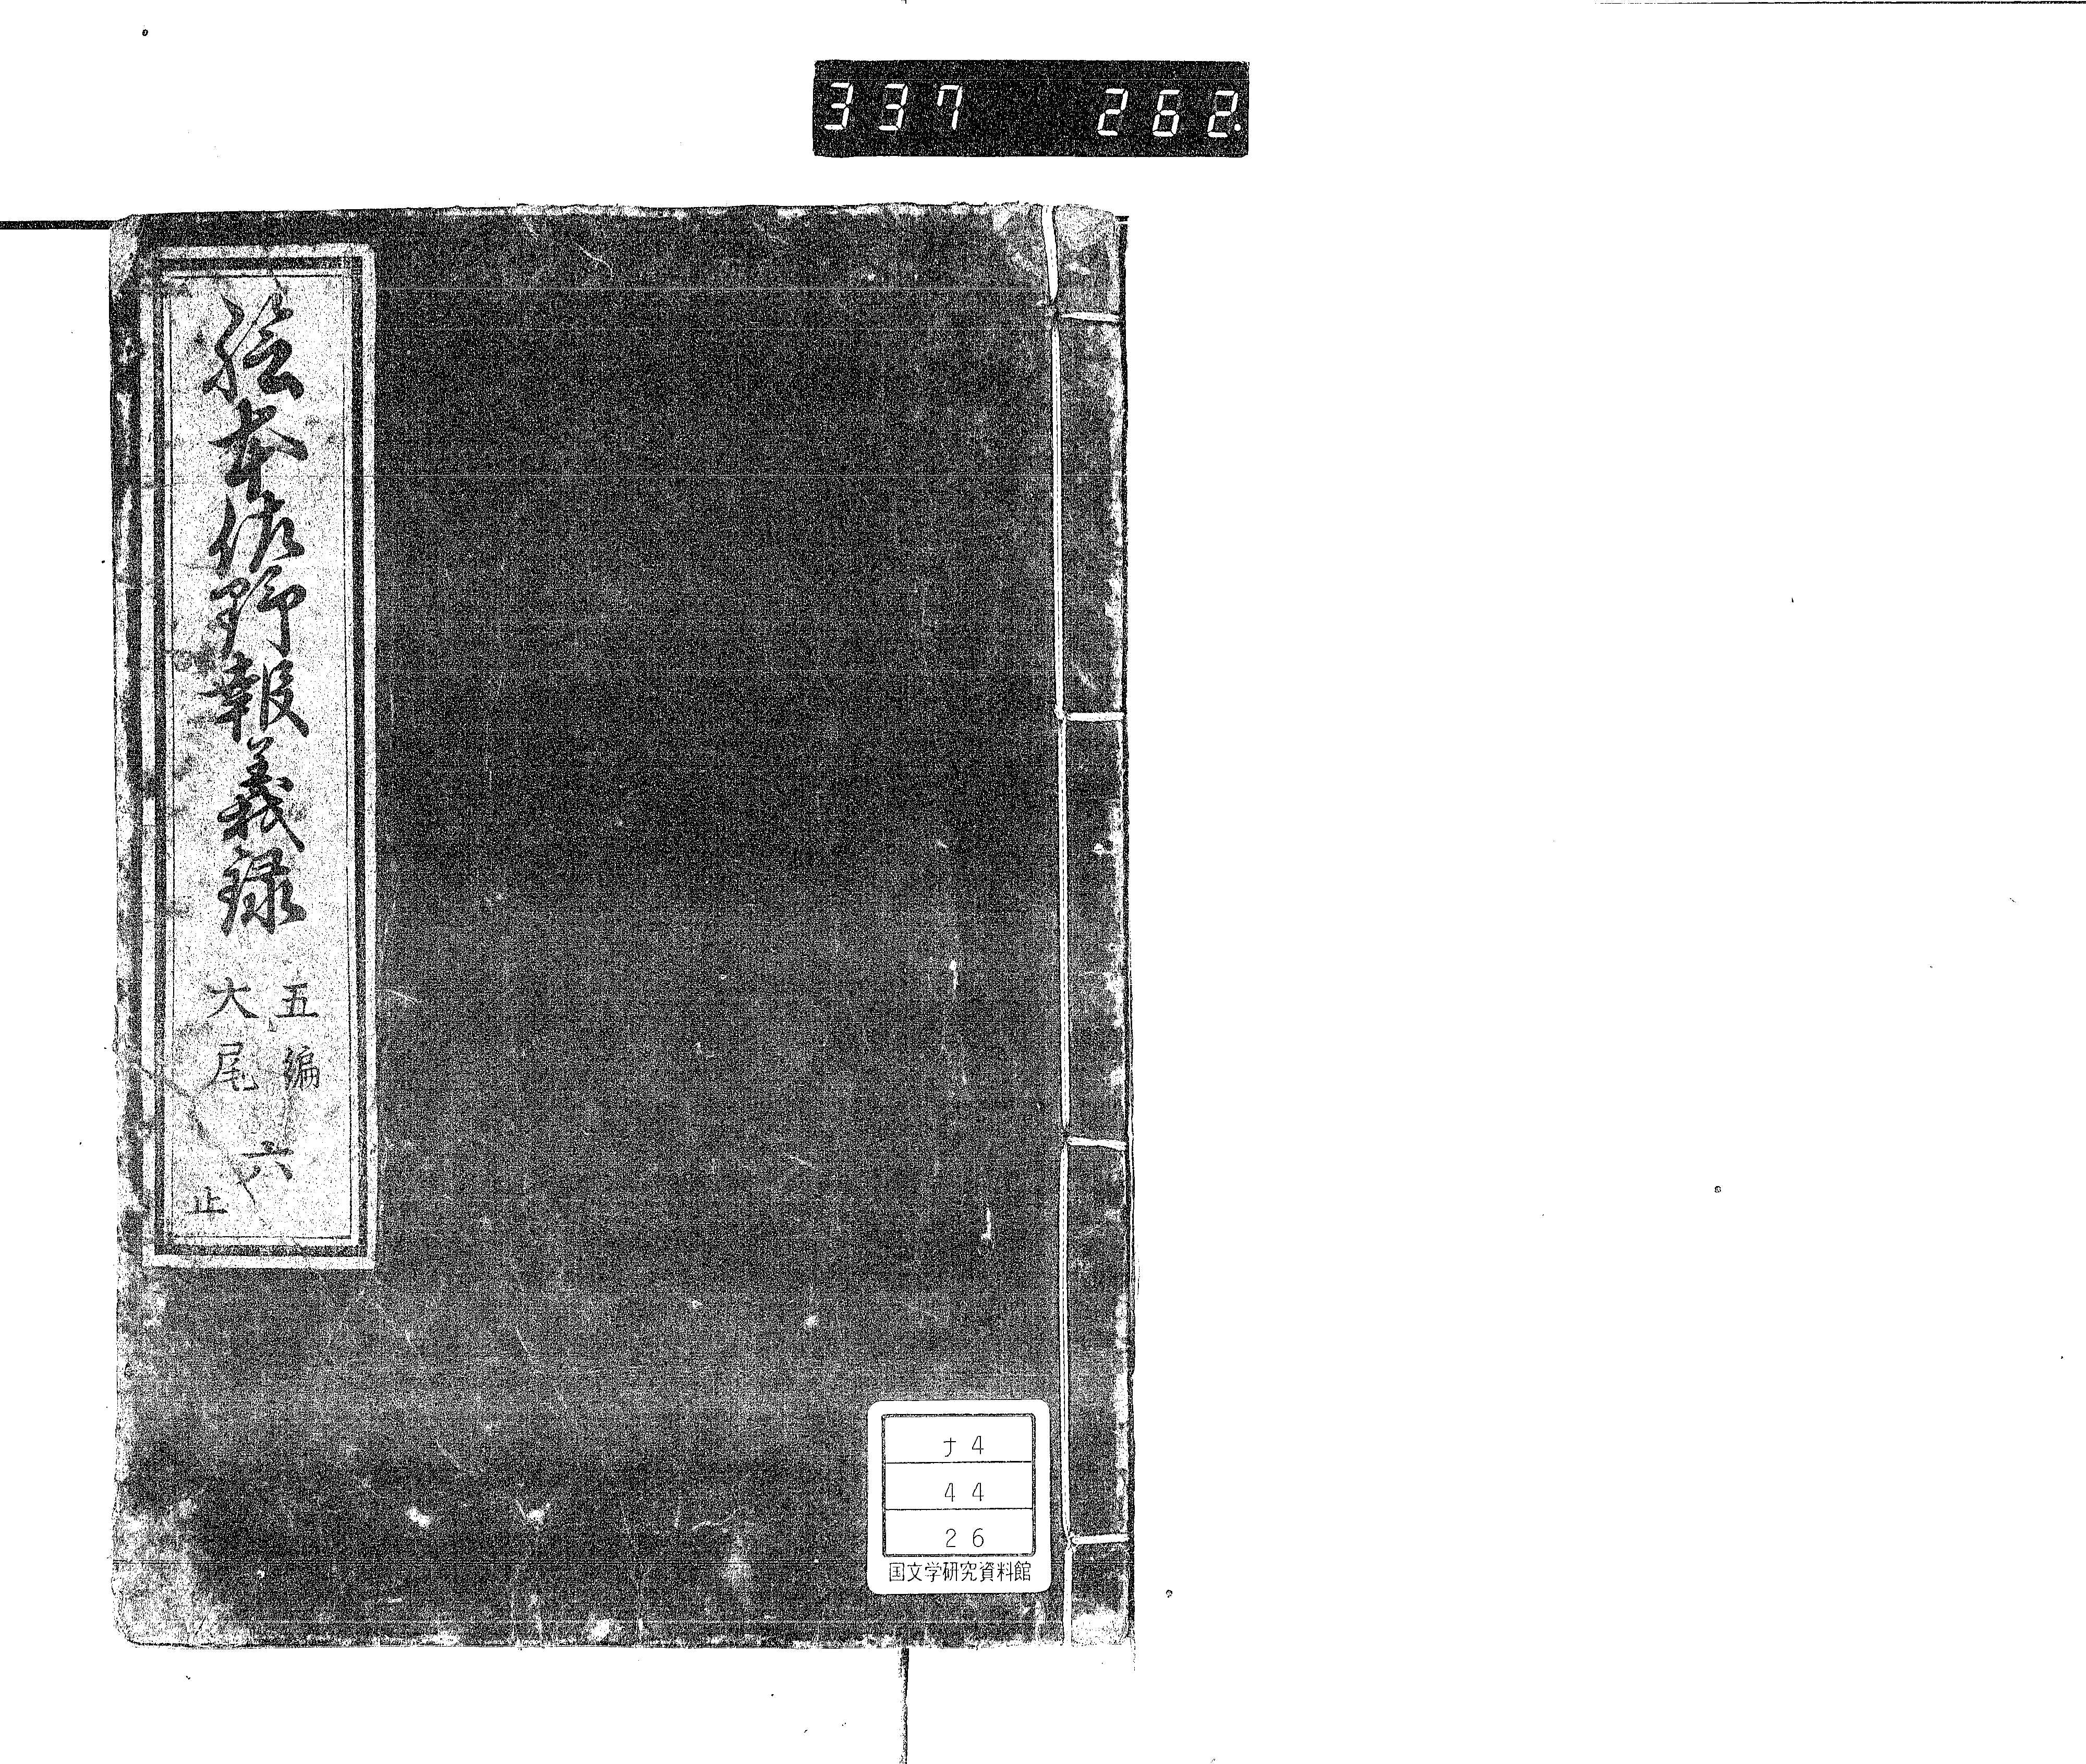 337 262.
絵本佐野報義録
五編
大尾
六
止
ナ4
44
26
国文学研究資料館